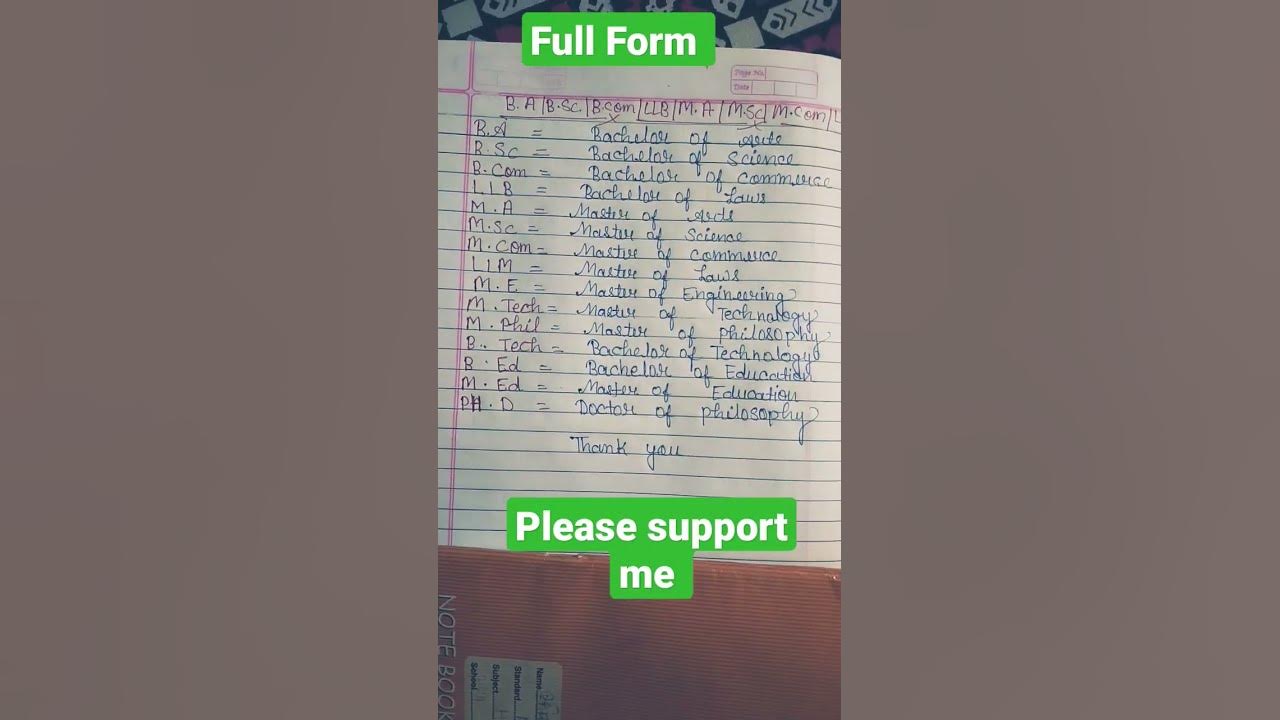 Full Form
Page No.
Date
B.A|B.Sc.|B.Com|LLB|M.A|M.Sc|M.Com|L
B.A = Bachelor of Arts
B.Sc = Bachelor of Science
B.Com = Bachelor of Commerce
LLB = Bachelor of Laws
M.A = Master of Arts
M.Sc = Master of Science
M.Com = Master of Commerce
LLM = Master of Laws
M.E = Master of Engineering
M.Tech = Master of Technology
M.Phil = Master of philosophy
B.Tech = Bachelor of Technology
B.Ed = Bachelor of Education
M.Ed = Master of Education
PH.D = Doctor of philosophy
Thank you
Please support
me
NOTE BOOK
Name
Standard
Subject
School